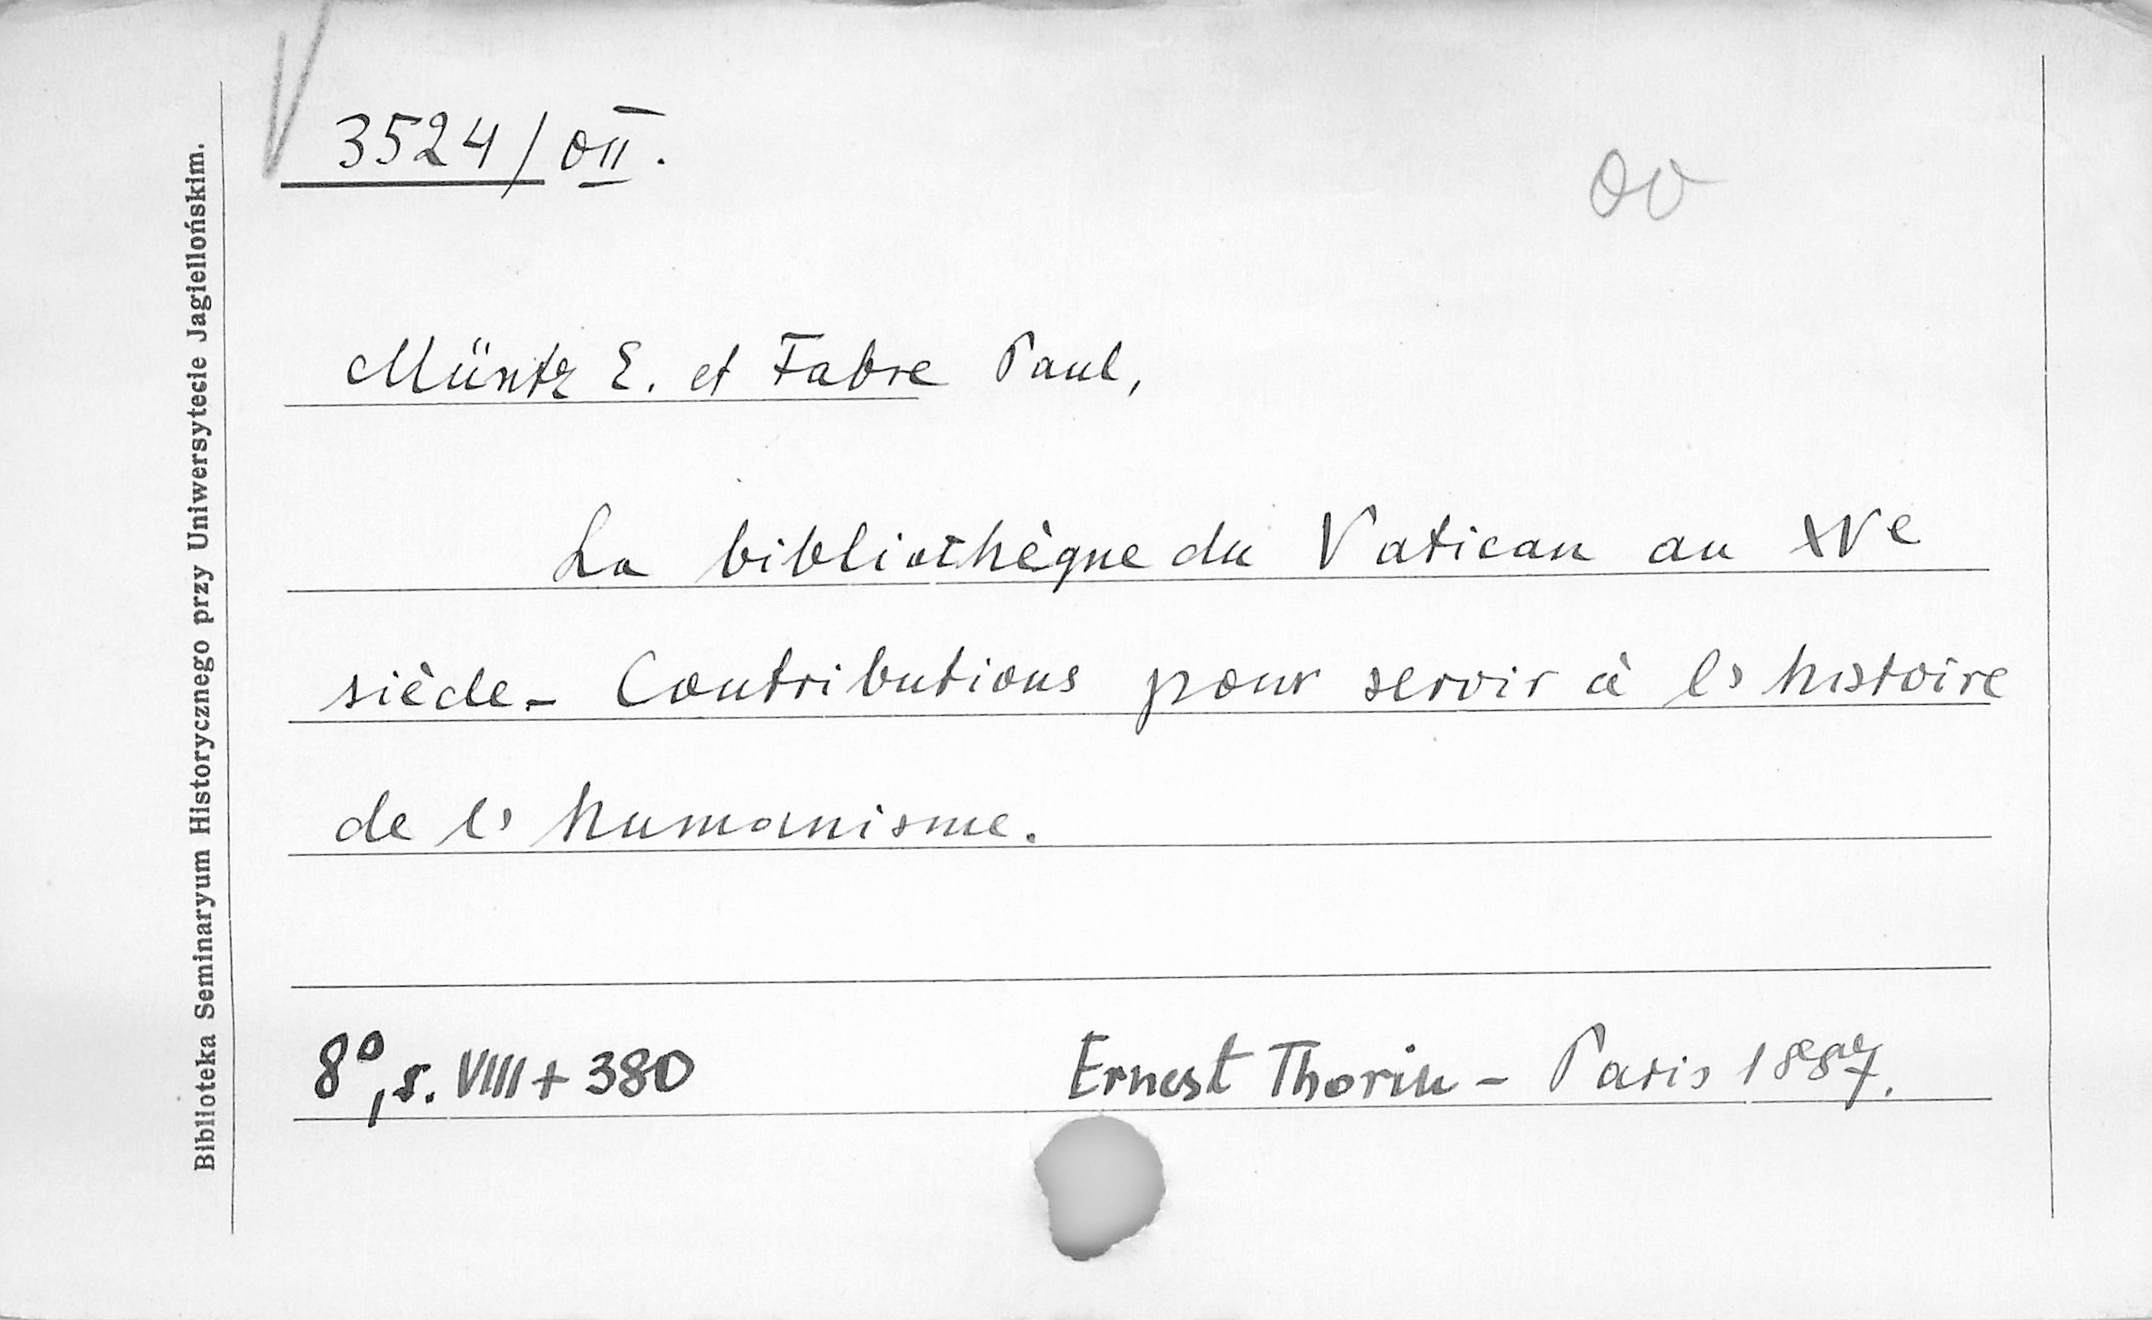 V
3524/OII.
Müntz E. et Fabre Paul,
La bibliothèque du Vatican au XVe
siècle - Contributions pour servir à l'histoire
de l'humanisme.
8°, s. VIII + 380
Ernest Thorin - Paris 1887.
Biblioteka Seminaryum Historycznego przy Uniwersytecie Jagiellońskim.